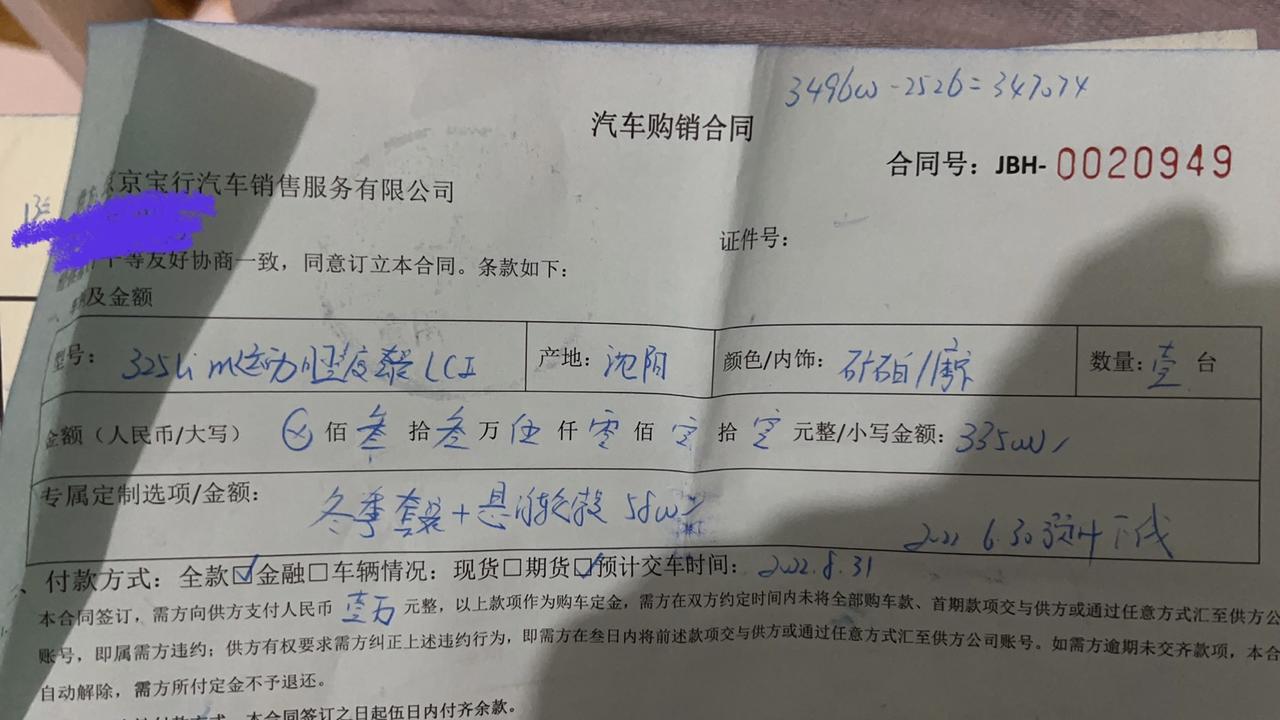 349600-2526=347074
汽车购销合同
合同号：JBH-0020949
京宝行汽车销售服务有限公司
证件号：
等友好协商一致，同意订立本合同。条款如下：
及金额
型号：325Li m运动曜夜套装LCI 产地：沈阳 颜色/内饰：矿石白/摩 数量：壹 台
金额（人民币/大写） ⊗ 佰 叁 拾 叁 万 伍 仟 零 佰 零 拾 零 元整/小写金额：335000
专属定制选项/金额：冬季套装+悬 5800
2022 6.30 下线
付款方式：全款☑金融□车辆情况：现货□期货☑预计交车时间：2022.8.31
本合同签订，需方向供方支付人民币 壹万 元整，以上款项作为购车定金，需方在双方约定时间内未将全部购车款、首期款项交与供方或通过任意方式汇至供方公
账号，即属需方违约；供方有权要求需方纠正上述违约行为，即需方在叁日内将前述款项交与供方或通过任意方式汇至供方公司账号。如需方逾期未交齐款项，本合
自动解除，需方所付定金不予退还。
本合同签订之日起伍日内付齐余款。